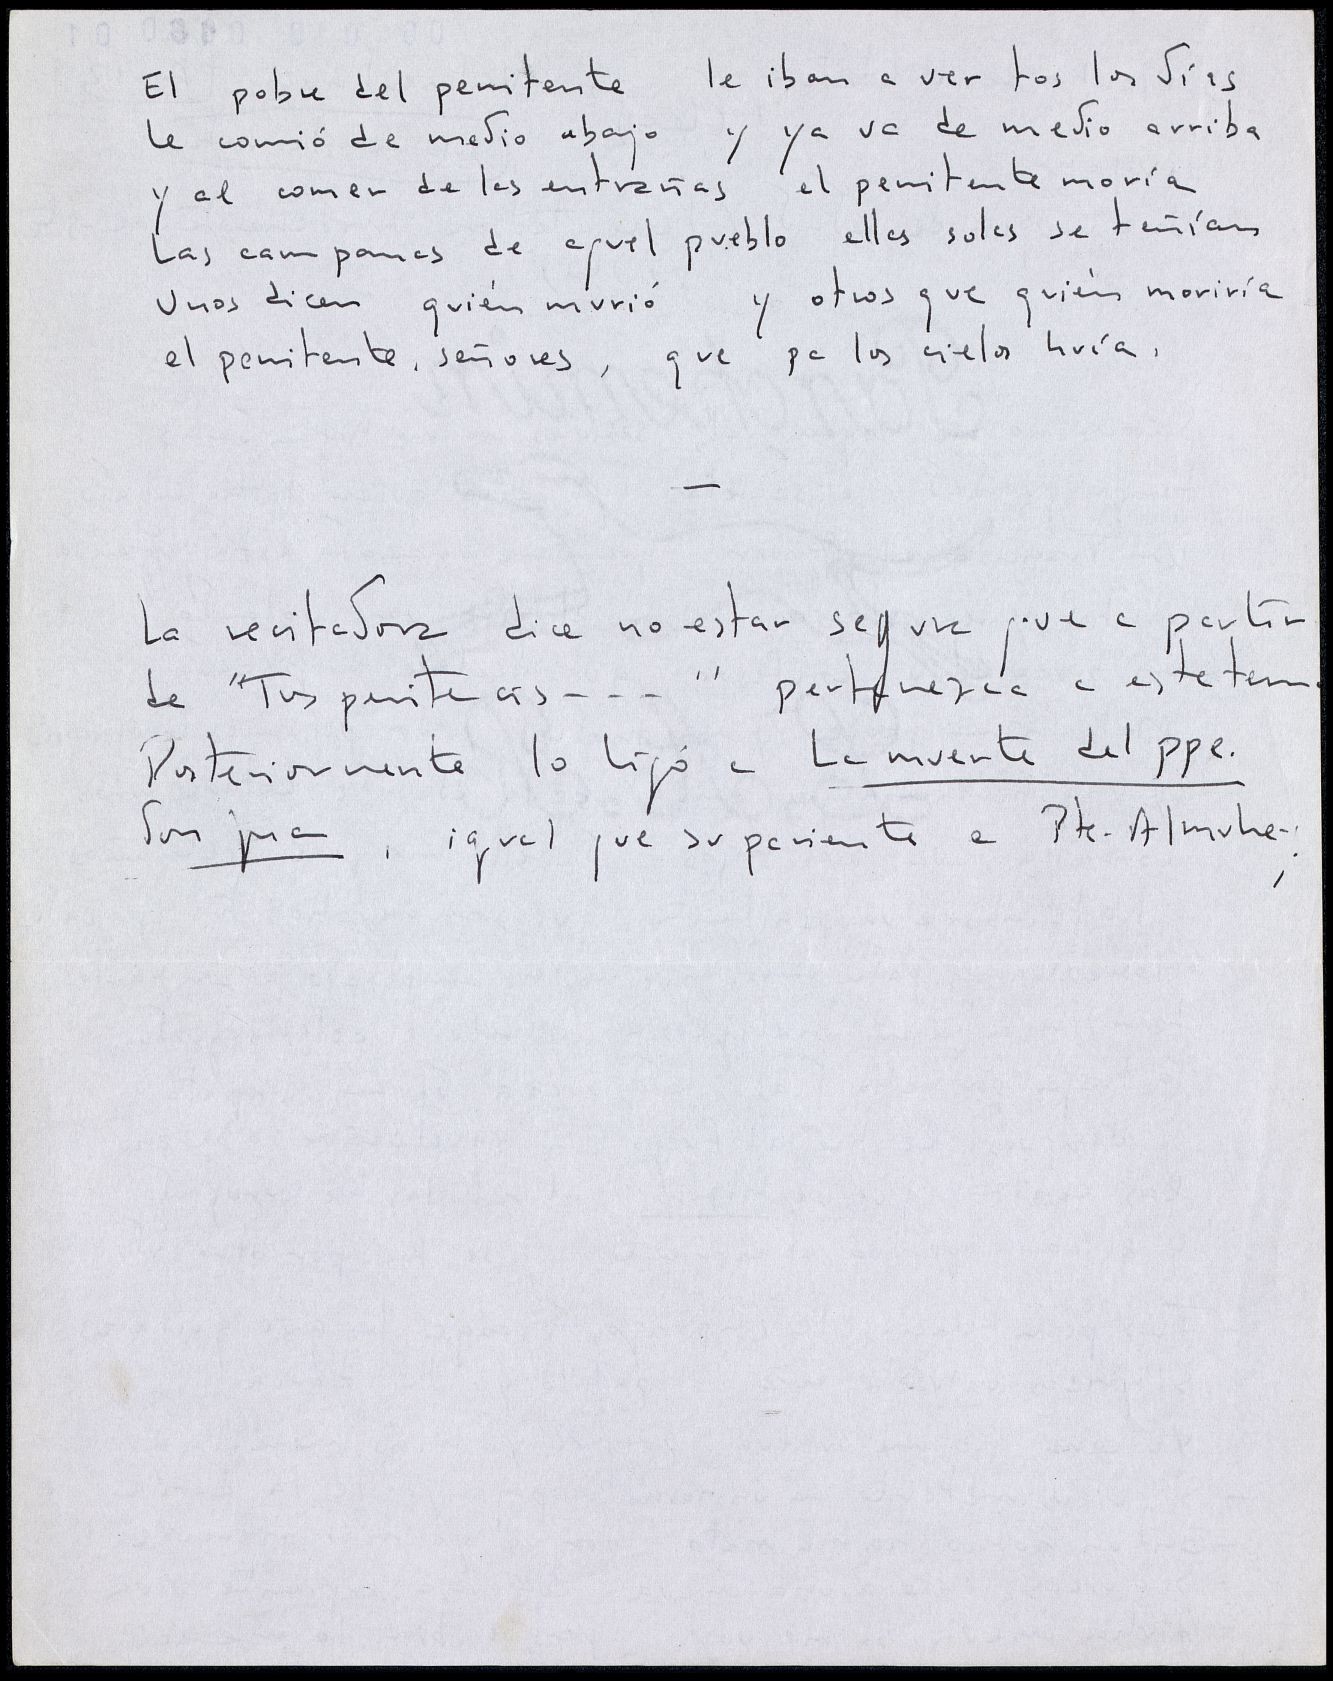 El pobre del penitente le iban a ver tos los días
le comió de medio abajo y ya va de medio arriba
y al comer de las entrañas el penitente moría
Las campanas de aquel pueblo ellas solas se teñían
Unos dicen quién murió y otros que quién moriría
el penitente, señores, que pa los cielos huía.
—
La recitadora dice no estar segura que a partir
de "Tus penitecias - - - " pertenezca a este tema
Posteriormente lo ligó a La muerte del ppe.
don jua , igual que su pariente a Pte. Almuhe-